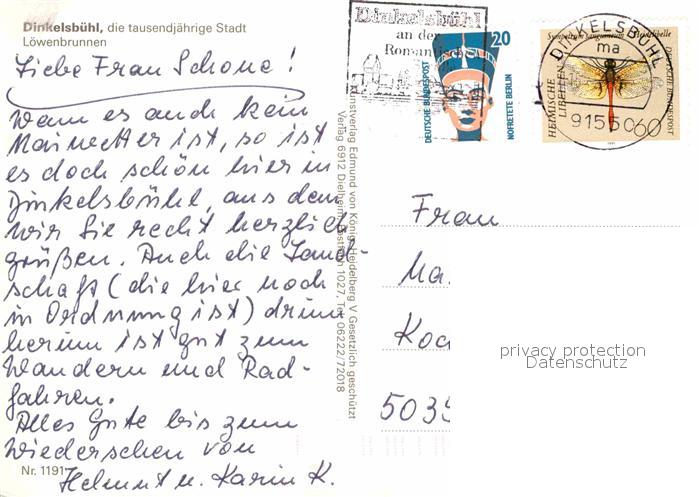 Dinkelsbühl, die tausendjährige Stadt
Löwenbrunnen
Liebe Frau Schone!
Wenn es auch kein
Maiwetter ist, so ist
es doch schön hier in
Dinkelsbühl, aus dem
wir Sie recht herzlich
grüßen. Auch die Land-
schaft (die hier noch
in Ordnung ist) drum
herum ist gut zum
Wandern und Rad-
fahren.
Alles Gute bis zum
Wiedersehen von
Helmut u. Karin K.
Nr. 1191
Kunstverlag Edmund von König, Heidelberg V Gesetzlich geschützt
Verlag 6912 Dielheim, Postfach 1027, Tel. 06222/72018
Dinkelsbühl
an der
Romantisch
20
DEUTSCHE BUNDESPOST
NOFRETETE BERLIN
Sympetrum sanguineum Heidelibelle
HEIMISCHE
LIBELLEN
DEUTSCHE BUNDESPOST
60
DINKELSBÜHL
ma
9155
Frau
Ma.
Koc
5035
privacy protection
Datenschutz